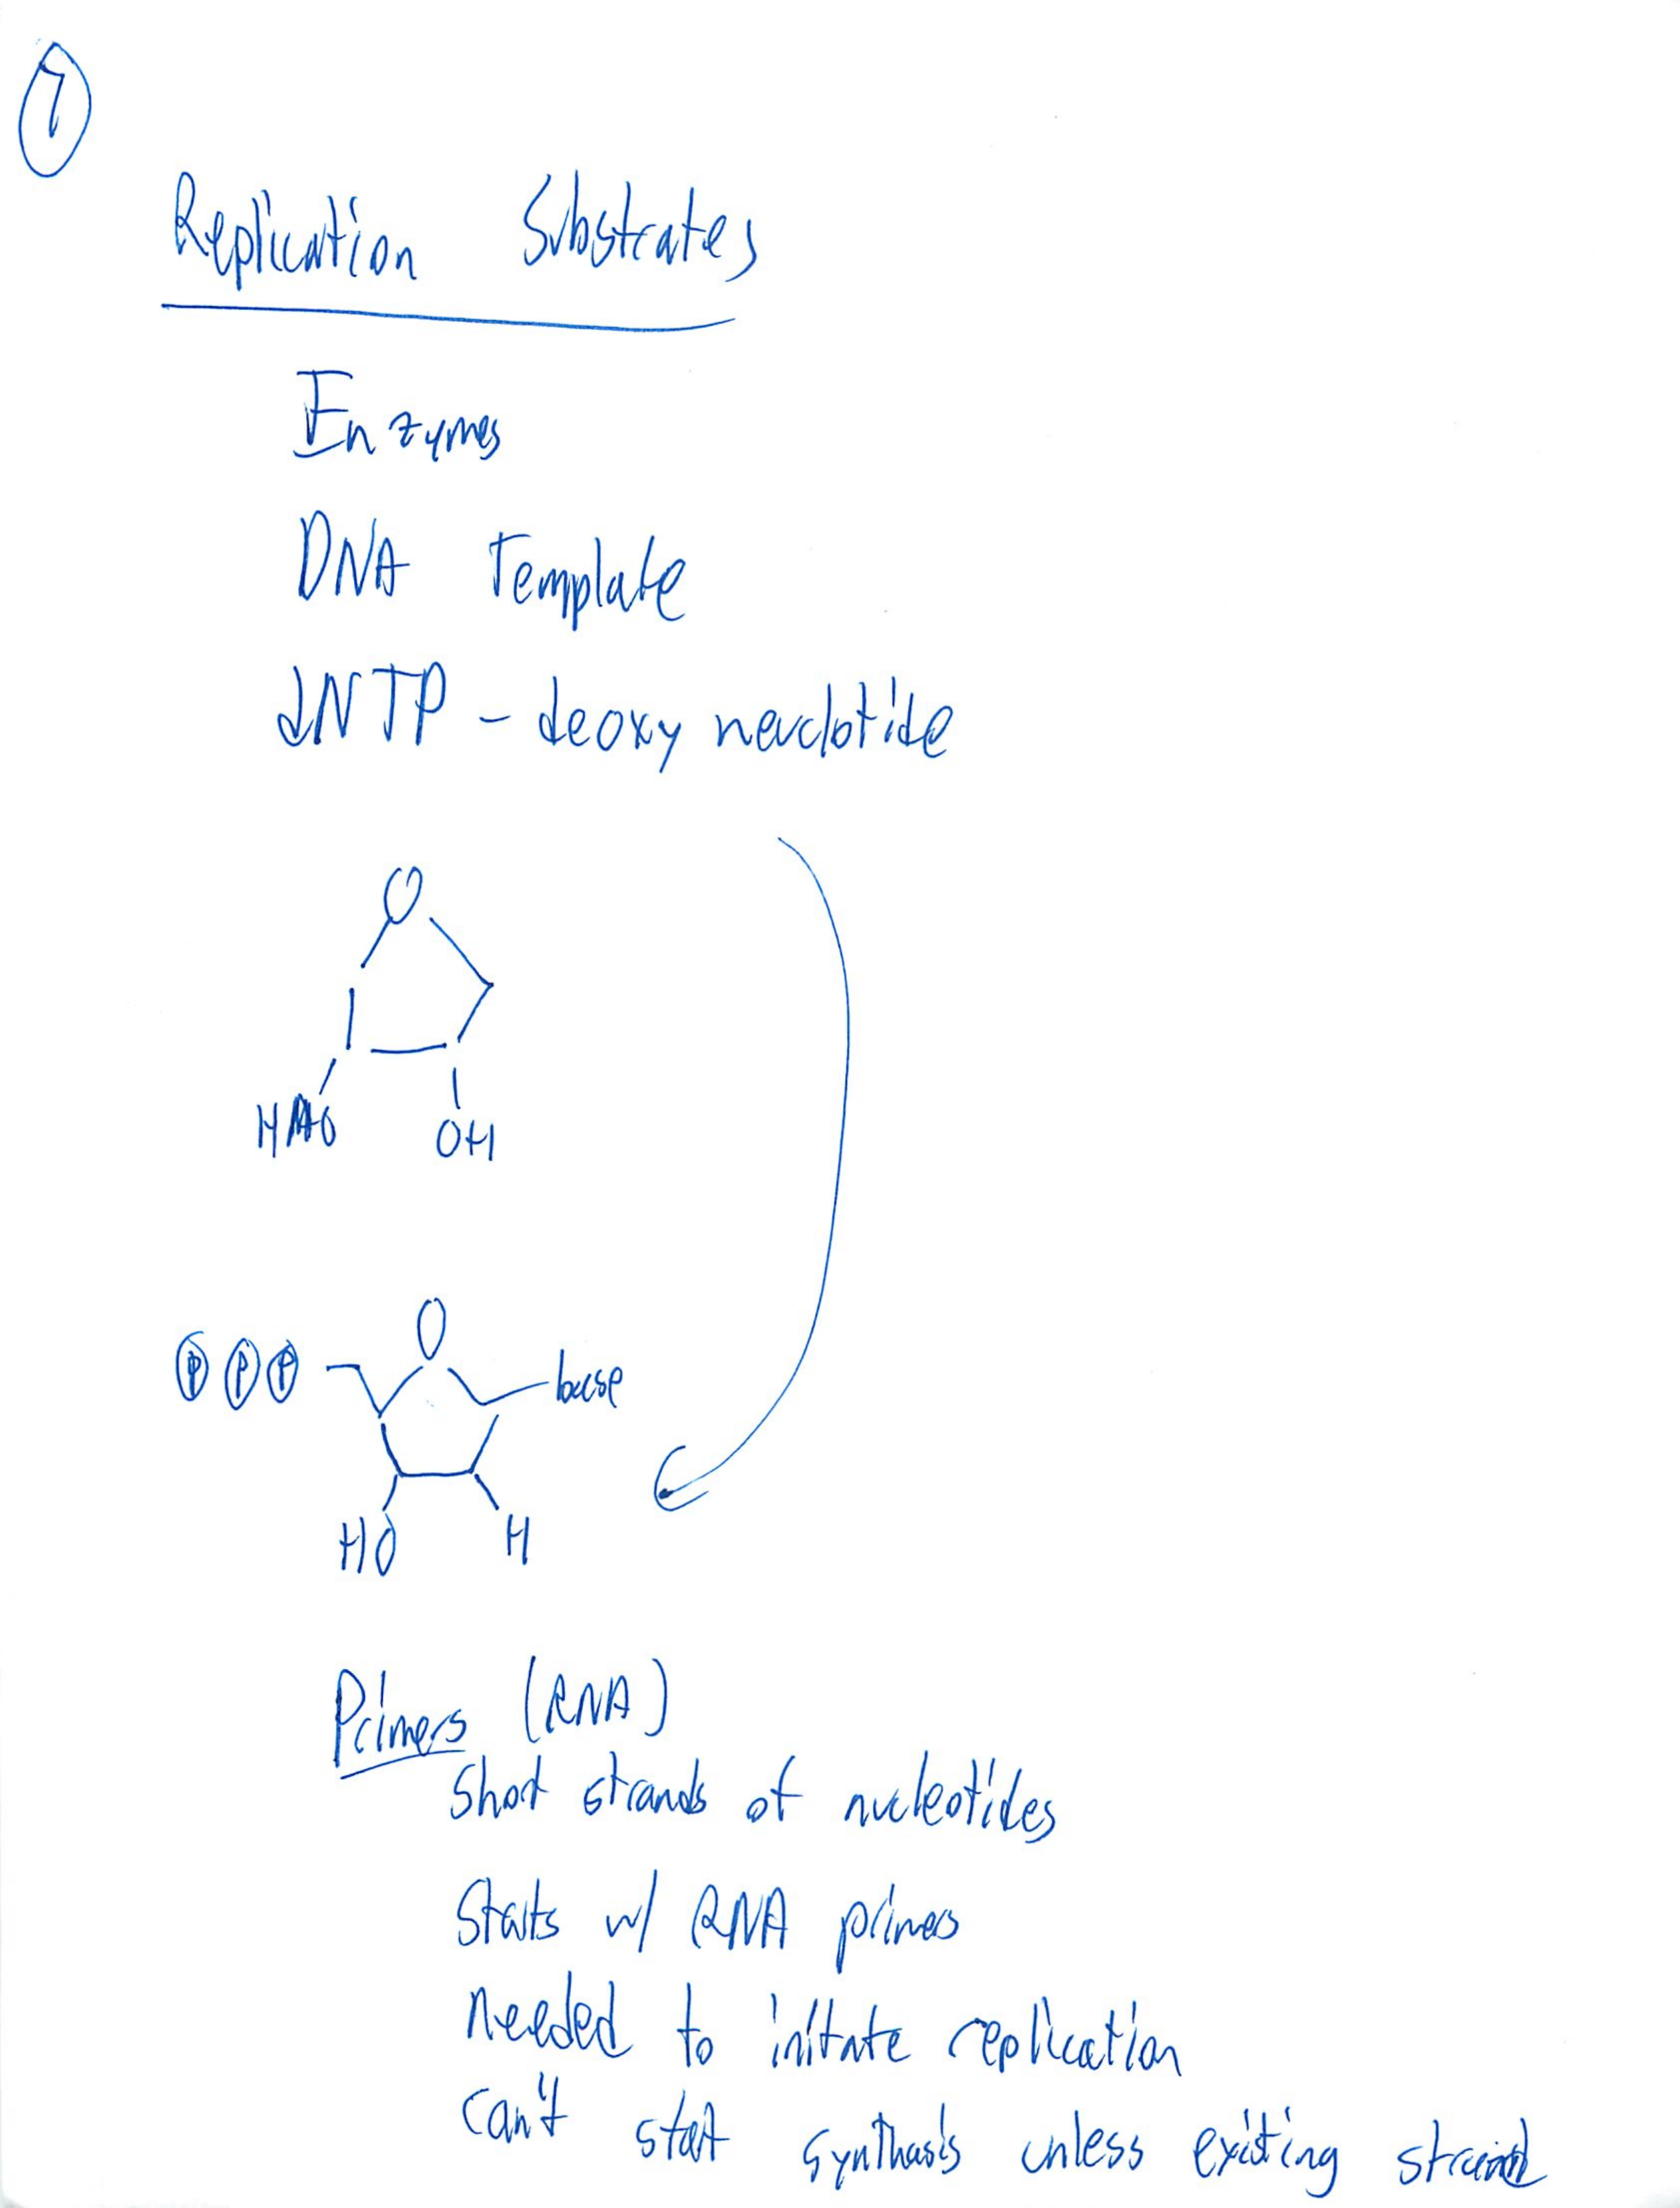 7
Replication Substrates
Enzymes
DNA Template
dNTP - deoxy neuclotide
O
HO OH
O
P P P base
HO H
Primers (RNA)
Short strands of nucleotides
Starts w/ RNA primers
needed to initate replication
can't start synthasis unless existing strand